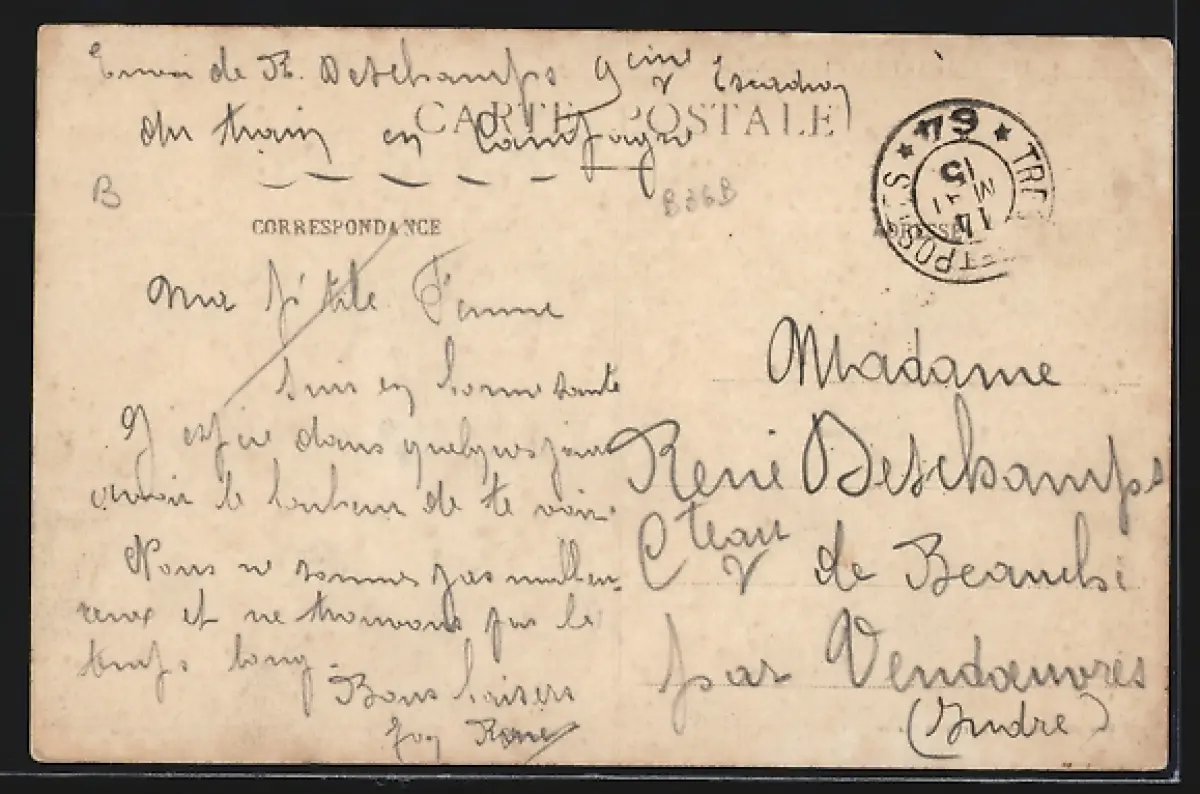 Envoi de R. Deschamps 9eme Escadron
du train en Campagne
CARTE POSTALE
B
B36B
CORRESPONDANCE
ADRESSE
TRESOR ET POSTES
* 64 *
14
MAI
15
Ma p'tite Femme
Suis en bonne santé
J'espère dans quelques jours
avoir le bonheur de te voir.
Nous ne sommes pas malheu-
reux et ne trouvons pas le
temps long.
Bons baisers
Ton René
Madame
René Deschamps
Cteau de Beauché
par Vendœuvres
(Indre)